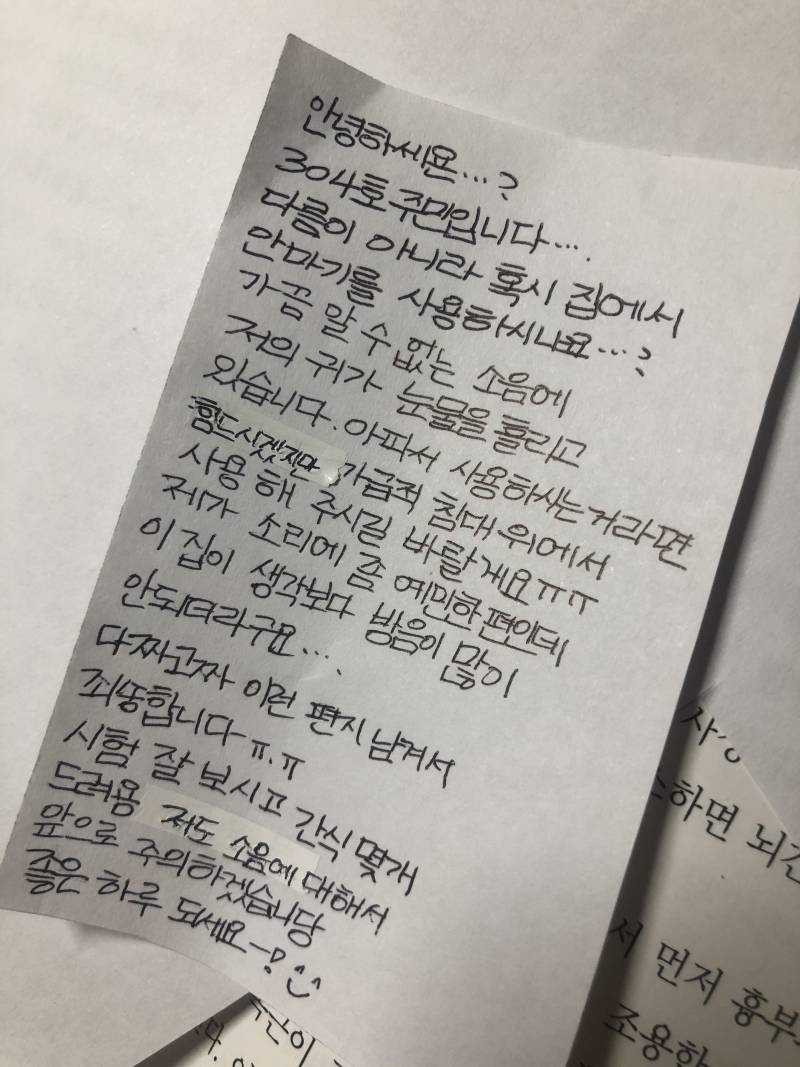 안녕하세욘...?
304호 주민입니다....
다름이 아니라 혹시 집에서
안마기를 사용하시나요...?
가끔 알 수 없는 소음에
저의 귀가 눈물을 흘리고
있습니다. 아파서 사용하시는거라면
힘드시겠지만 가급적 침대 위에서
사용해 주시길 바랄게요ㅠㅠ
제가 소리에 좀 예민한 편인데
이 집이 생각보다 방음이 많이
안되더라구요....
다짜고짜 이런 편지 남겨서
죄송합니다ㅠ.ㅠ
시험 잘 보시고 간식 몇개
드려용 저도 소음에 대해서
앞으로 주의하겠습니당
좋은 하루 되세요-!
하면 뇌
서 먼저 흥부
조용한